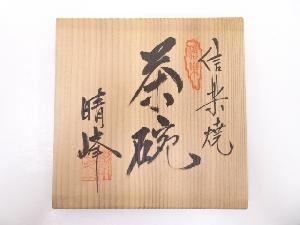 信楽焼
茶碗
晴峰